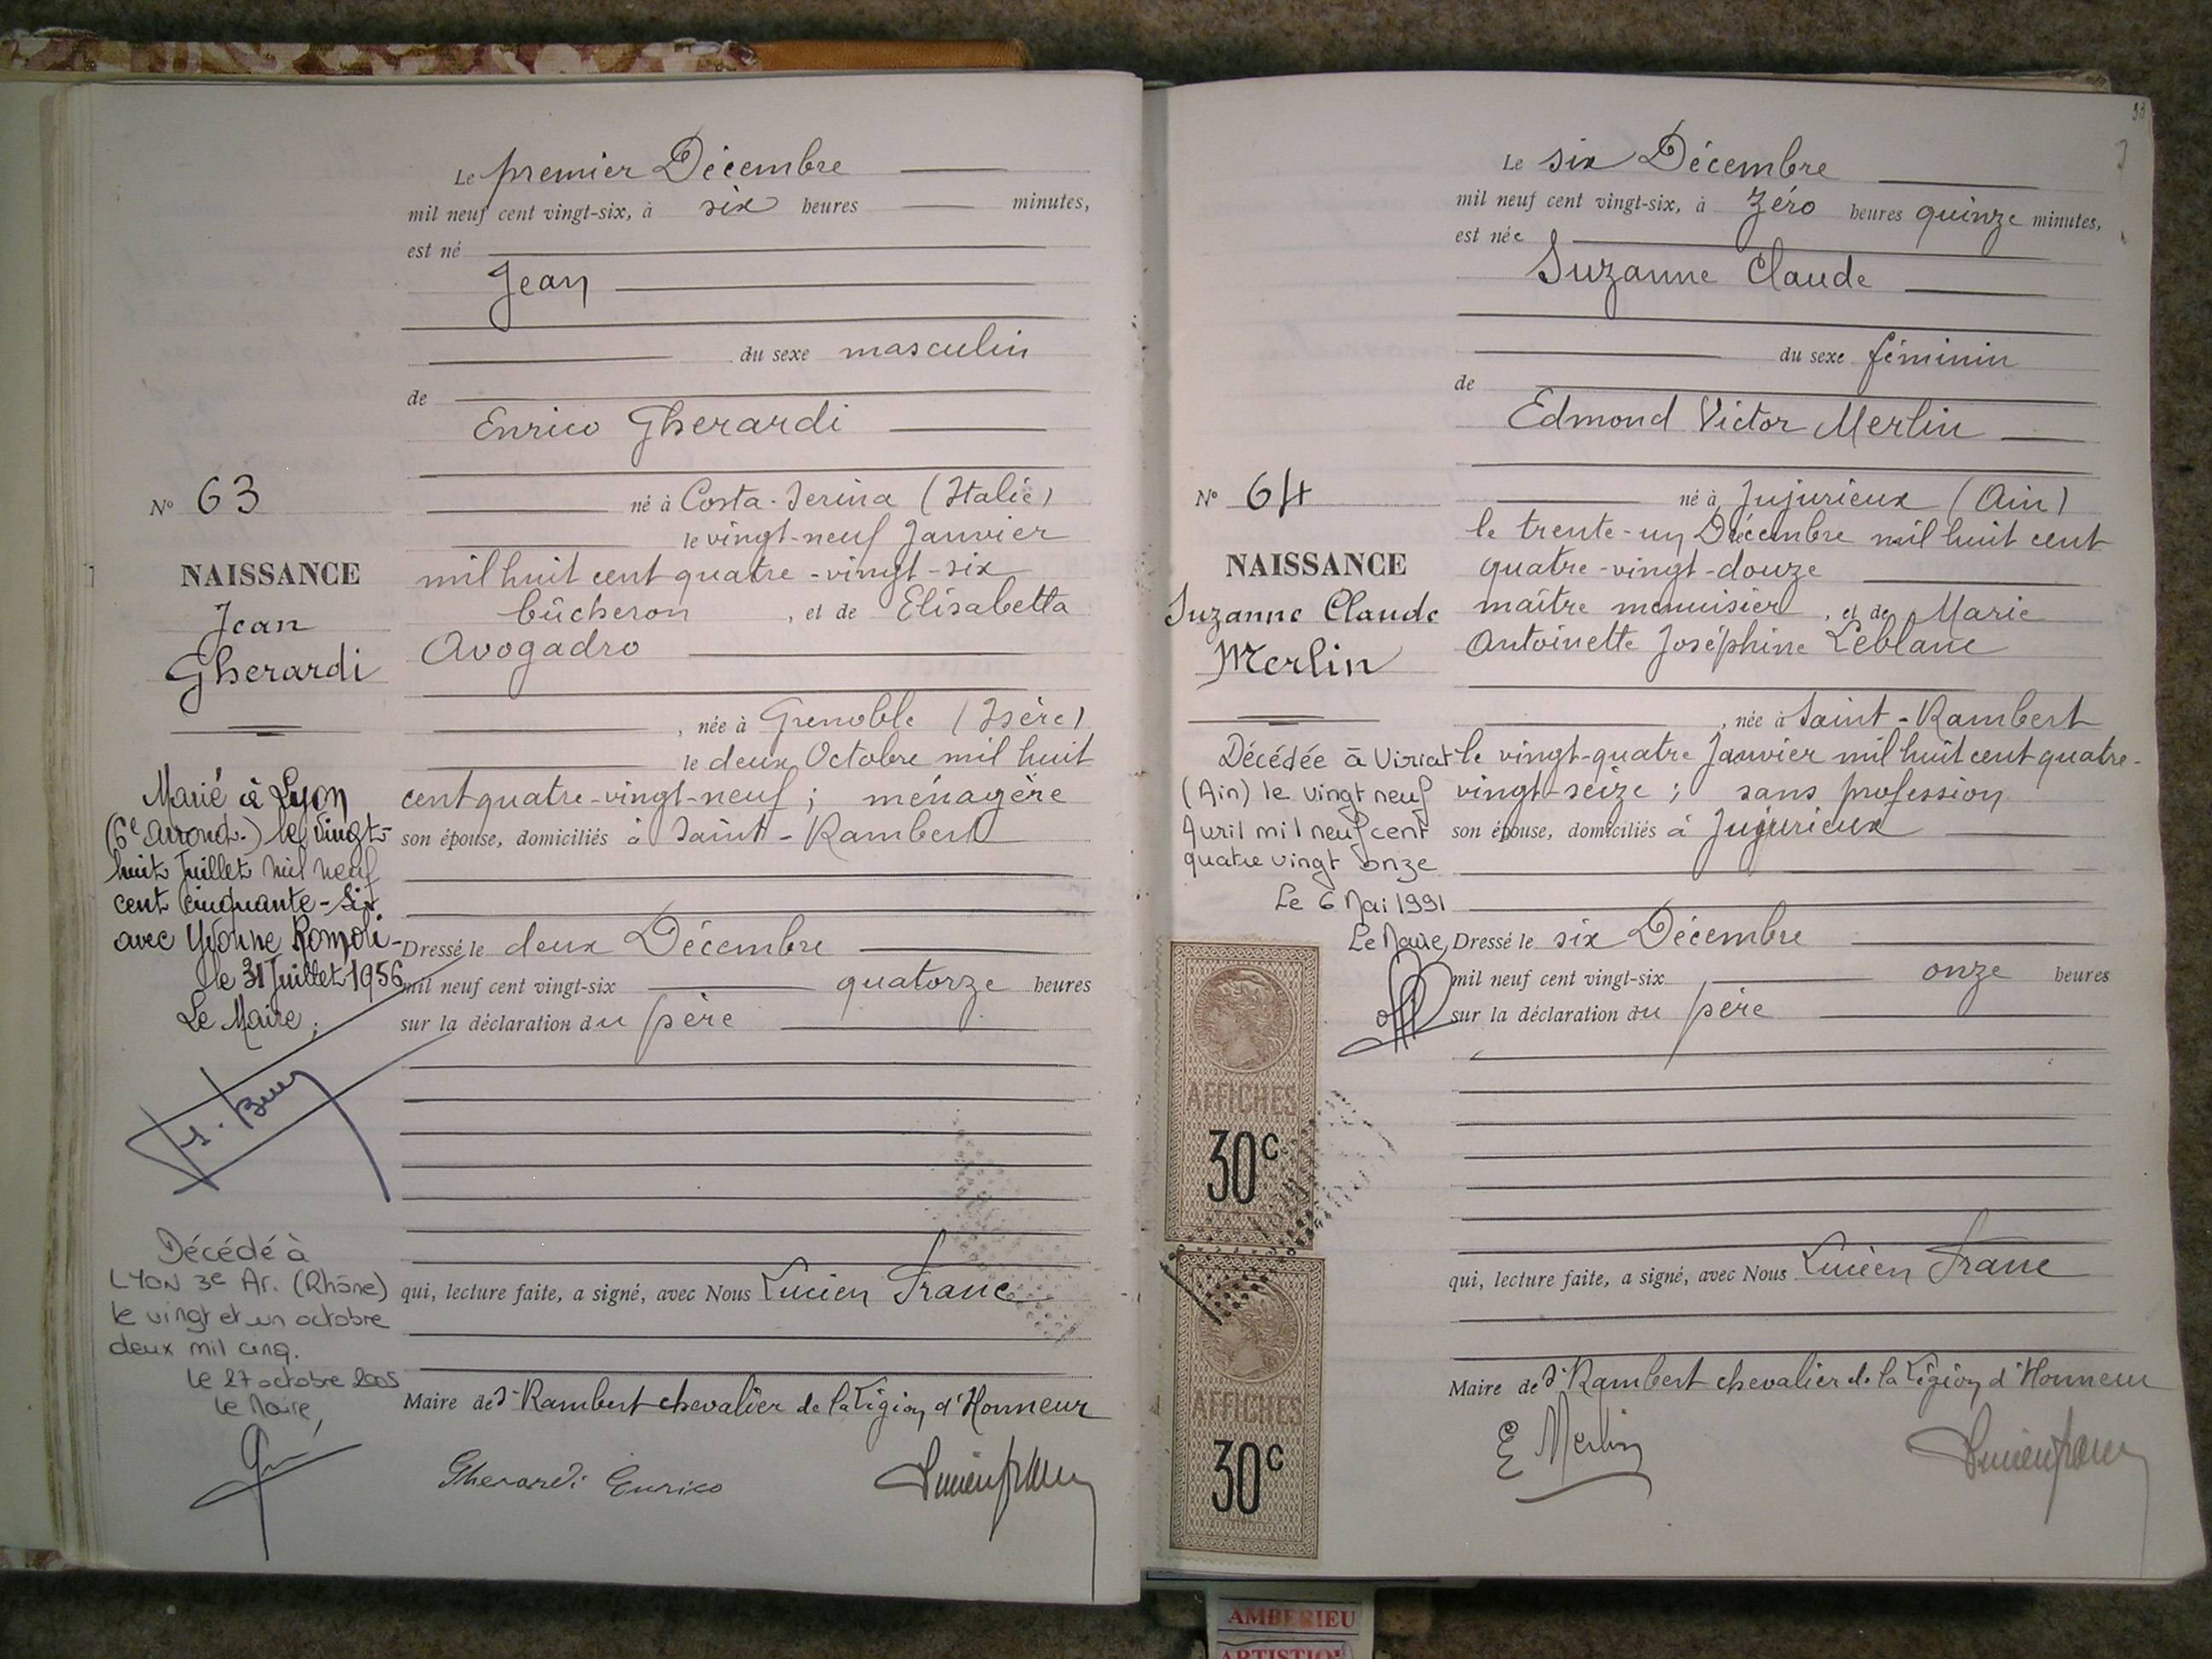 Le premier Décembre
mil neuf cent vingt-six, à six heures minutes,
est né
Jean
du sexe masculin
de
Enrico Gherardi
né à Costa-Serina (Italie)
le vingt-neuf Janvier
mil huit cent quatre-vingt-six
bûcheron, et de Elisabetta
Avogadro
, née à Grenoble (Isère)
le deux Octobre mil huit
cent quatre-vingt-neuf ; ménagère
son épouse, domiciliés à Saint-Rambert
Dressé le deux Décembre
mil neuf cent vingt-six quatorze heures
sur la déclaration du père
qui, lecture faite, a signé, avec Nous Lucien Franc
Maire de St Rambert chevalier de la Légion d'Honneur
Gherardi Enrico
Lucien franc
N° 63
NAISSANCE
Jean
Gherardi
Marié à Lyon
(6e arrond.) le vingt-
huit Juillet mil neuf
cent cinquante-six
avec Yvonne
le 31 Juillet 1956
Le Maire,
Décédé à
LYON 3e Ar. (Rhône)
le vingt et un octobre
deux mil cinq.
Le 27 octobre 2005
Le Maire,
33
Le six Décembre
mil neuf cent vingt-six, à zéro heures quinze minutes,
est née
Suzanne Claude
du sexe féminin
de
Edmond Victor Merlin
né à Jujurieux (Ain)
le trente-un Décembre mil huit cent
quatre-vingt-douze
maître menuisier, et de Marie
Antoinette Joséphine Leblanc
, née à Saint-Rambert
le vingt-quatre Janvier mil huit cent quatre-
vingt-seize ; sans profession
son épouse, domiciliés à Jujurieux
Dressé le six Décembre
mil neuf cent vingt-six onze heures
sur la déclaration du père
qui, lecture faite, a signé, avec Nous Lucien Franc
Maire de St Rambert chevalier de la Légion d'Honneur
E Merlin
Lucien franc
N° 64
NAISSANCE
Suzanne Claude
Merlin
Décédée à Viriat
(Ain) le vingt neuf
Avril mil neuf cent
quatre vingt onze
Le 6 Mai 1991
Le Maire,
AFFICHES
30c
AFFICHES
30c
AMBERIEU